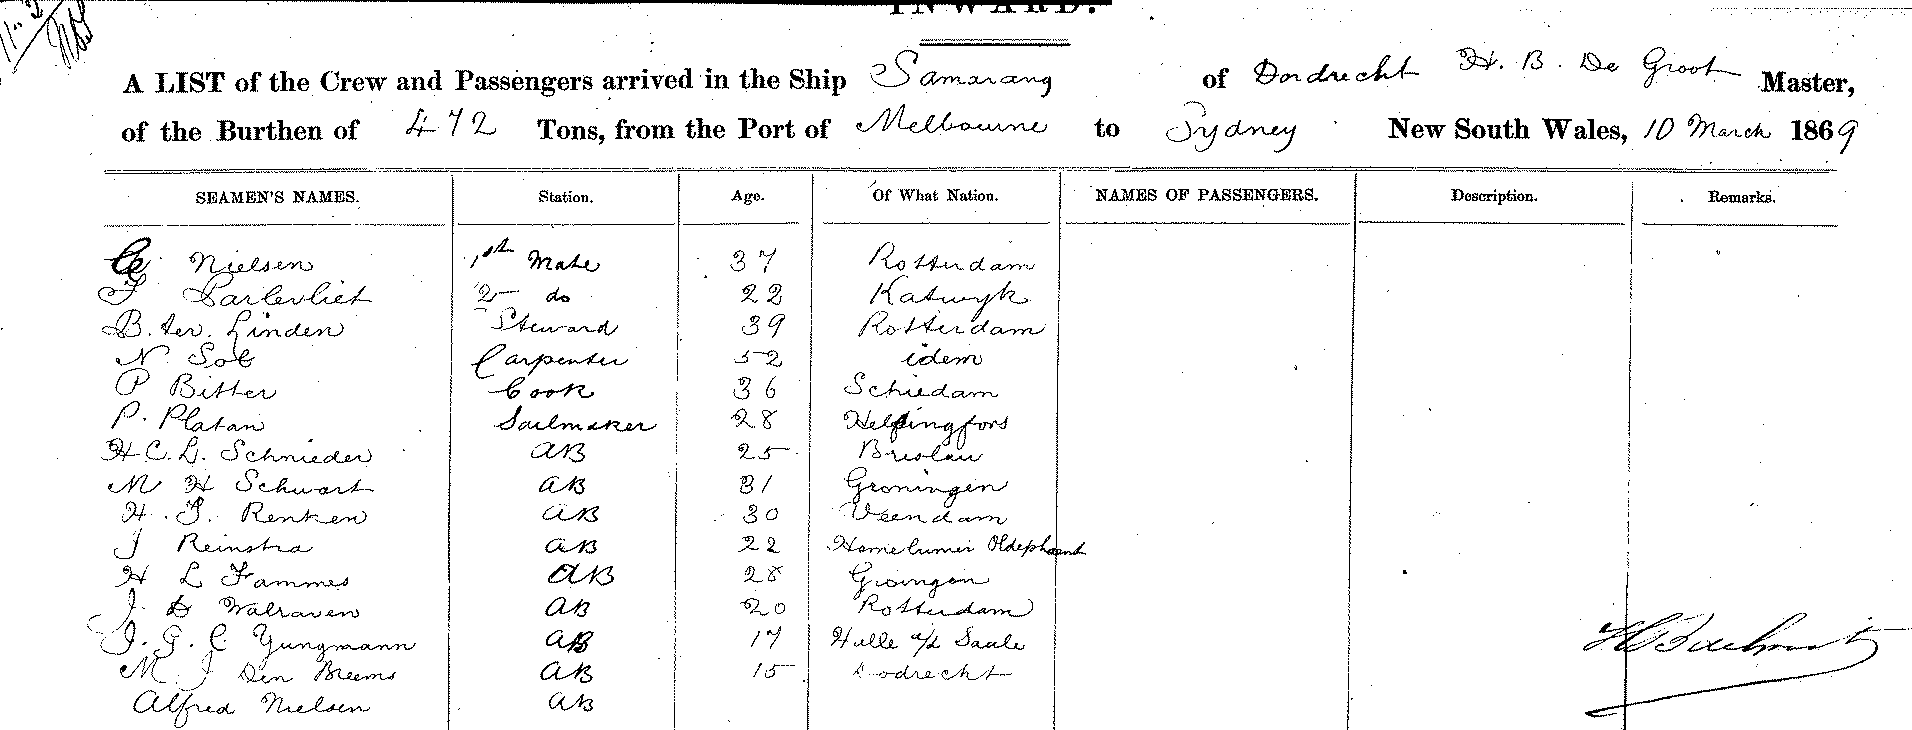 INWARD.
A LIST of the Crew and Passengers arrived in the Ship Samarang of Dordrecht H. B. De Groot Master,
of the Burthen of 472 Tons, from the Port of Melbourne to Sydney New South Wales, 10 March 1869
SEAMEN'S NAMES. Station. Age. Of What Nation. NAMES OF PASSENGERS. Description. Remarks.
Nielsen 1st Mate 37 Rotterdam
Parlevliet 2 do 22 Katwyk
B. ter. Linden Steward 39 Rotterdam
N. Sol Carpenter 52 idem
P Bitter Cook 36 Schiedam
P. Platan Sailmaker 28 Helsingfors
H C. L. Schnieder AB 25 Breslau
M H Schwart AB 31 Groningen
H. Renken AB 30 Veendam
J Reinstra AB 22 Oldephaent
H L Fammes AB 28 Groingen
J. D Walraven AB 20 Rotterdam
J. G. C Yungmann AB 17 Halle a/d Saale
M. J Den Breems AB 15 Dodrecht
Alfred Nielsen AB